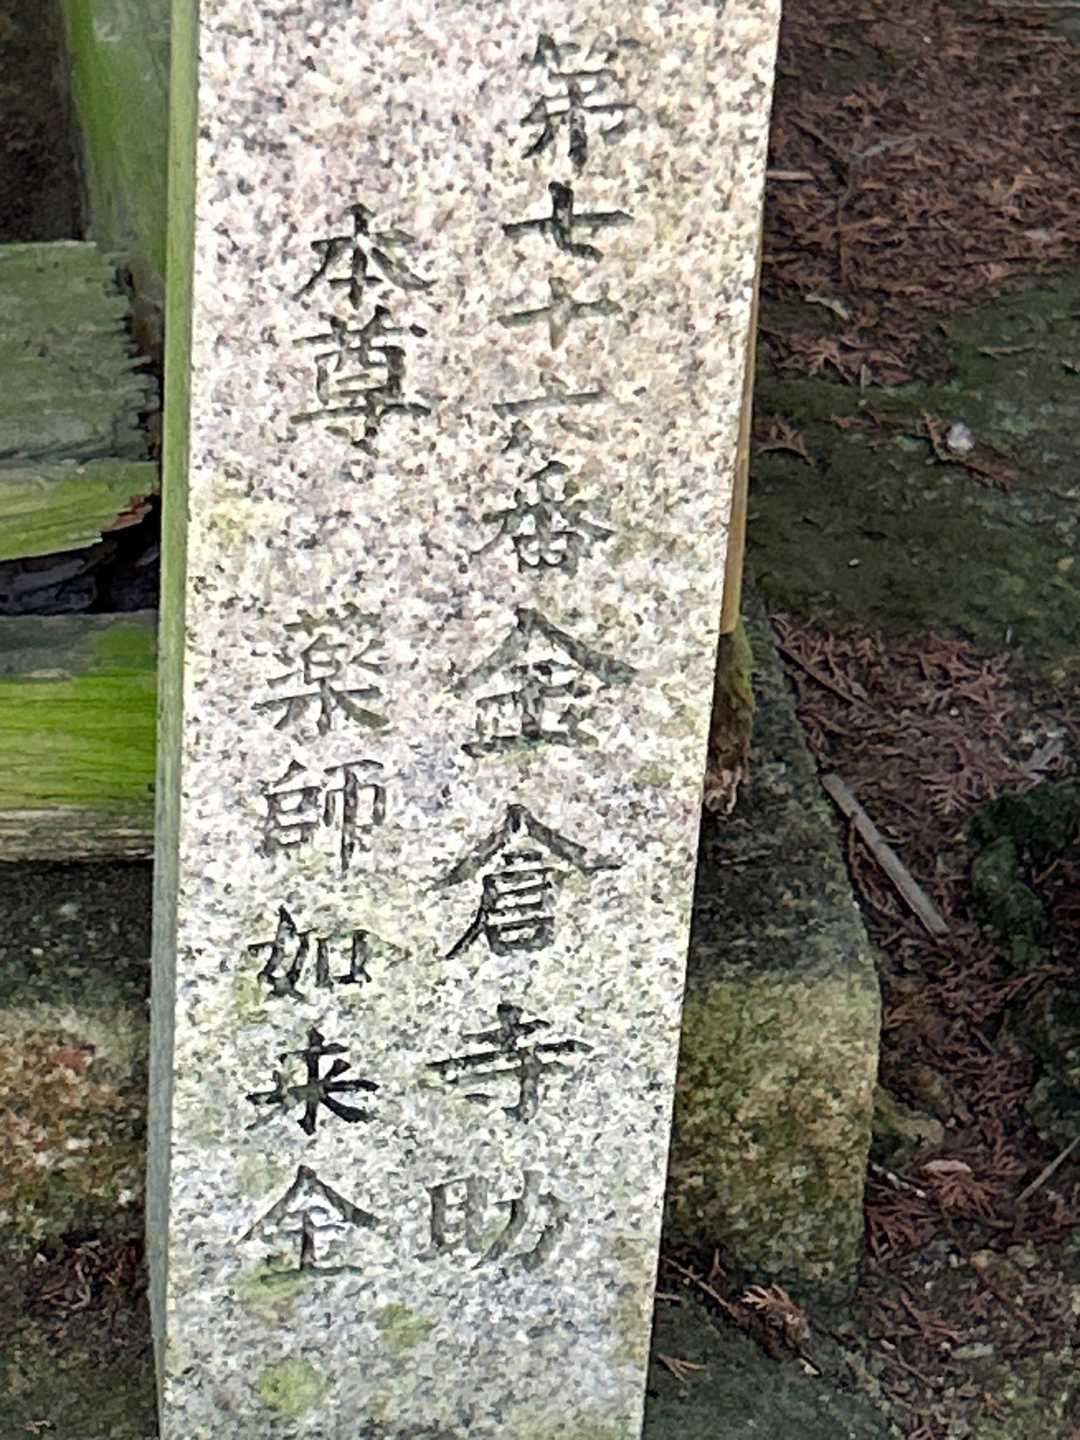 第七十六番金倉寺助
本尊 薬師如来全